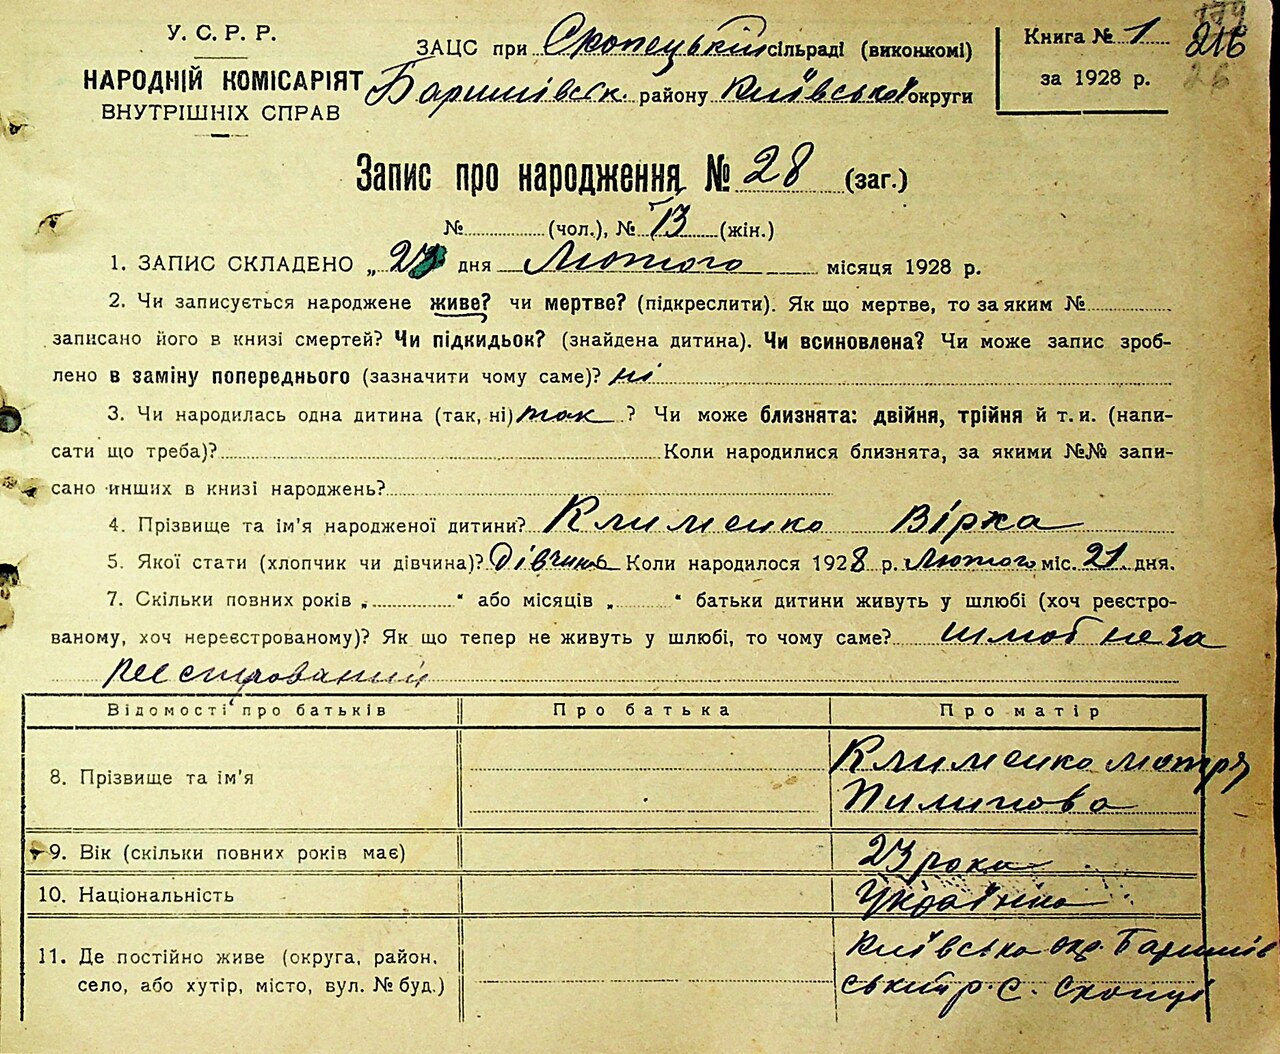 У. С. Р. Р.
НАРОДНІЙ КОМІСАРІЯТ
ВНУТРІШНІХ СПРАВ
ЗАЦС при Скопецькій сільраді (виконкомі)
Баришівськ. району Київської округи
Книга № 1
за 1928 р.
216
26
Запис про народження № 28 (заг.)
№ (чол.), № 13 (жін.)
1. ЗАПИС СКЛАДЕНО „ 23 дня Лютого місяця 1928 р.
2. Чи записується народжене живе? чи мертве? (підкреслити). Як що мертве, то за яким №
записано його в книзі смертей? Чи підкидьок? (знайдена дитина). Чи всиновлена? Чи може запис зроб-
лено в заміну попереднього (зазначити чому саме)? ні
3. Чи народилась одна дитина (так, ні) так ? Чи може близнята: двійня, трійня й т. и. (напи-
сати що треба)? Коли народилися близнята, за якими №№ запи-
сано инших в книзі народжень?
4. Прізвище та ім'я народженої дитини? Клименко Вірка
5. Якої стати (хлопчик чи дівчина)? Дівчина Коли народилося 1928 р. Лютого міс. 21 дня.
7. Скільки повних років „ “ або місяців „ “ батьки дитини живуть у шлюбі (хоч реєстро-
ваному, хоч нереєстрованому)? Як що тепер не живуть у шлюбі, то чому саме? шлюб не за
реєстрований
Відомості про батьків Про батька Про матір
8. Прізвище та ім'я Клименко Мотря
Пилипова
9. Вік (скільки повних років має) 23 роки
10. Національність Українка
11. Де постійно живе (округа, район, Київська окр. Баришів
село, або хутір, місто, вул. № буд.) ський р. с. Скопці